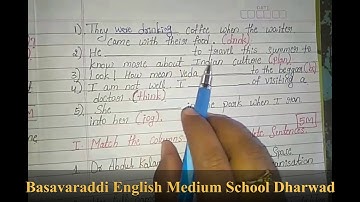 DATE
1) They were drinking coffee when the waiter
came with their food. (drink)
2) He to travel this summer to
know more about Indian culture (plan)
3) Look! How mean Veda to the beggar (be)
4) I am not well. I of visiting a
doctor. (think)
5) She the park when I ran
into her. (jog)
5M
I. Match the columns Sentences
1. Dr Abdul Kalam Space
Basavaraddi English Medium School Dharwad